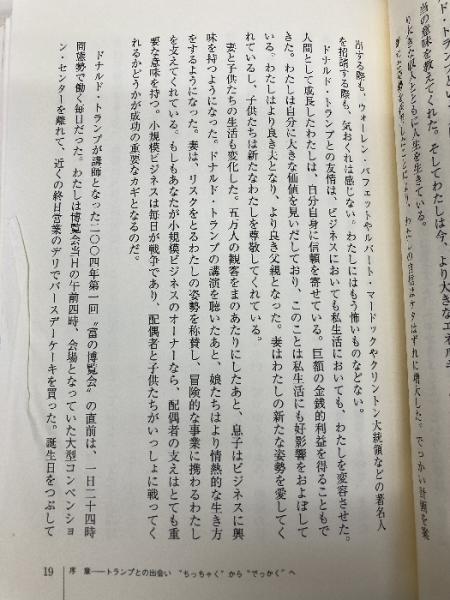 当の意味を教えてくれた。そしてわたしは今、より大きなエネルギ
り大きな収入とともに人生を生きている。
出する際も、ウォーレン・バフェットやルパート・マードックやクリントン大統領などの著名人
を招請する際も、気おくれは感じない。わたしにはもう怖いものなどない。
ドナルド・トランプとの友情は、ビジネスにおいても私生活においても、わたしを変容させた。
人間として成長したわたしは、自分自身に信頼を寄せている。巨額の金銭的利益を得ることもで
きた。わたしは自分に大きな価値を見いだしており、このことは私生活にも好影響をおよぼして
いる。わたしはより良き夫となり、より良き父親となった。妻はわたしの新たな姿勢を愛してく
れているし、子供たちは新たなわたしを尊敬してくれている。
妻と子供たちの生活も変化した。五万人の観客をまのあたりにしたあと、息子はビジネスに興
味を持つようになった。ドナルド・トランプの講演を聴いたあと、娘たちはより情熱的な生き方
をするようになった。妻は、リスクをとるわたしの姿勢を称賛し、冒険的な事業に携わるわたし
を支えてくれている。もしもあなたが小規模ビジネスのオーナーなら、配偶者の支えはとても重
要な意味を持つ。小規模ビジネスは毎日が戦争であり、配偶者と子供たちがいっしょに戦ってく
れるかどうかが成功の重要なカギとなるのだ。
ドナルド・トランプが講師となった二〇〇四年第一回〝富の博覧会〟の直前は、一日二十四時
間態勢で働く毎日だった。わたしは博覧会当日の午前四時、会場となっていた大型コンベンショ
ン・センターを離れて、近くの終日営業のデリでバースデーケーキを買った。誕生日をつぶして
19 序 章──トランプとの出会い〝ちっちゃく〟から〝でっかく〟へ